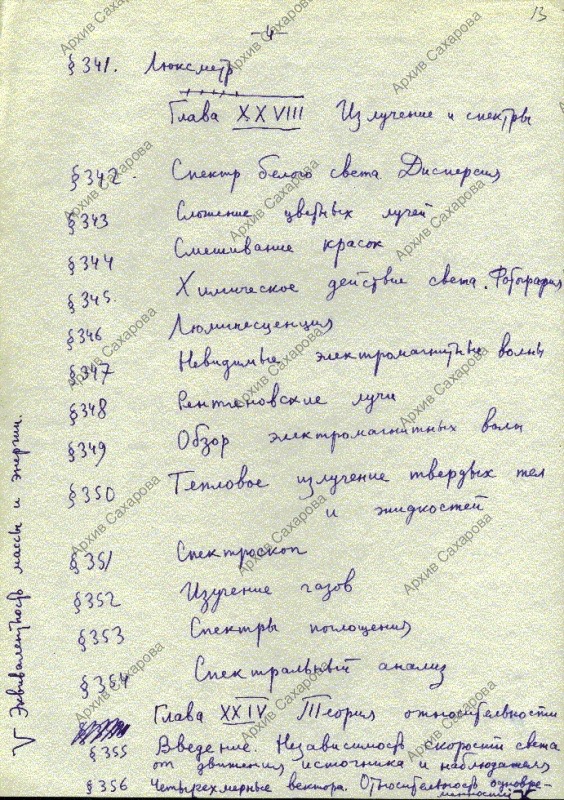 13
-4-
§ 341. Люксметр
Глава XXVIII Излучение и спектры
§342. Спектр белого света Дисперсия
§343 Сложение цветных лучей
§344 Смешивание красок
§345. Химическое действие света. Фотография
§346 Люминесценция
§347 Невидимые электромагнитные волны
§348 Рентгеновские лучи
§349 Обзор электромагнитных волн
§350 Тепловое излучение твердых тел
и жидкостей
§351 Спектроскоп
§352 Изучение газов
§353 Спектры поглощения
§354 Спектральный анализ
Глава XXIV Теория относительности
§355 Введение. Независимость скорости света
от движения источника и наблюдателя
§356 Четырехмерные вектора. Относительность одновре-
менности
V Эквивалентность массы и энергии.
Архив Сахарова